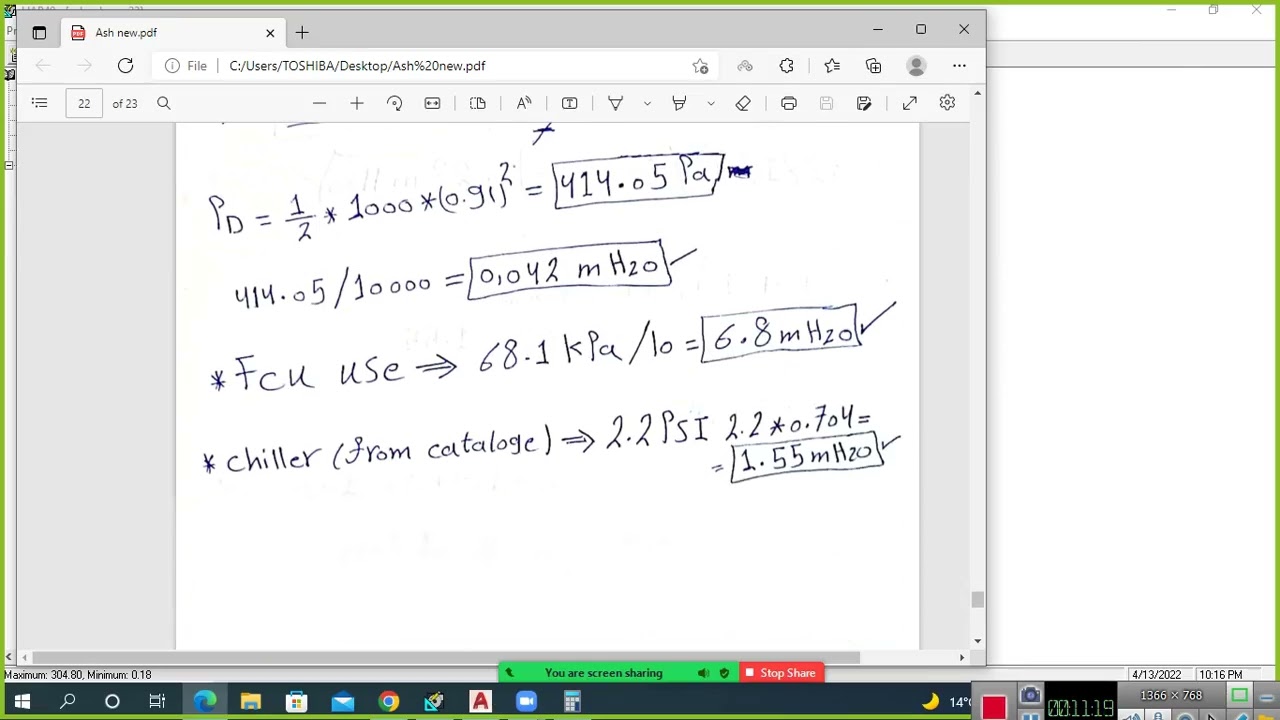 Ash new.pdf
File
C:/Users/TOSHIBA/Desktop/Ash%20new.pdf
22 of 23
P_D = 1/2 * 1000 *(0.91)² = 414.05 Pa
414.05/10000 = 0,042 mH2O
* Fcu use ⇒ 68.1 kPa/10 = 6.8 mH2O
* chiller (from cataloge) ⇒ 2.2 PSI 2.2 * 0.704 =
= 1.55 mH2O
You are screen sharing
Stop Share
Maximum: 304.80, Minimum: 0.18
4/13/2022
10:16 PM
14°
00:11:19
1366 × 768